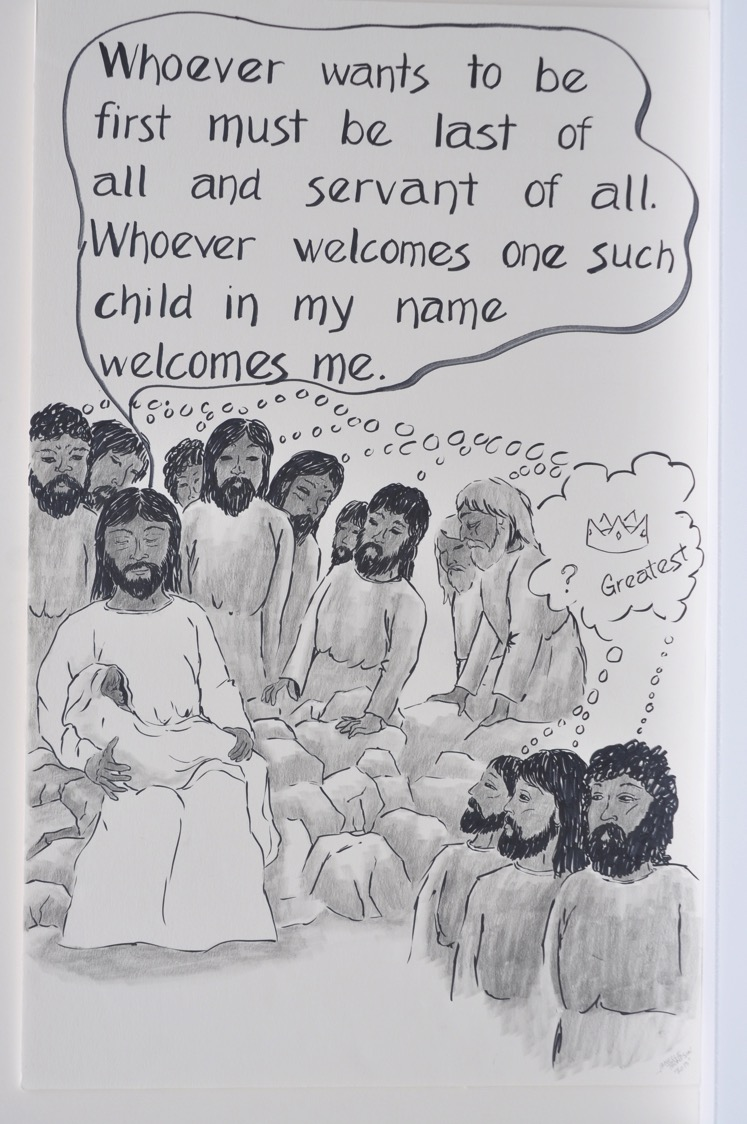 Whoever wants to be
first must be last of
all and servant of all.
Whoever welcomes one such
child in my name
welcomes me.
? Greatest